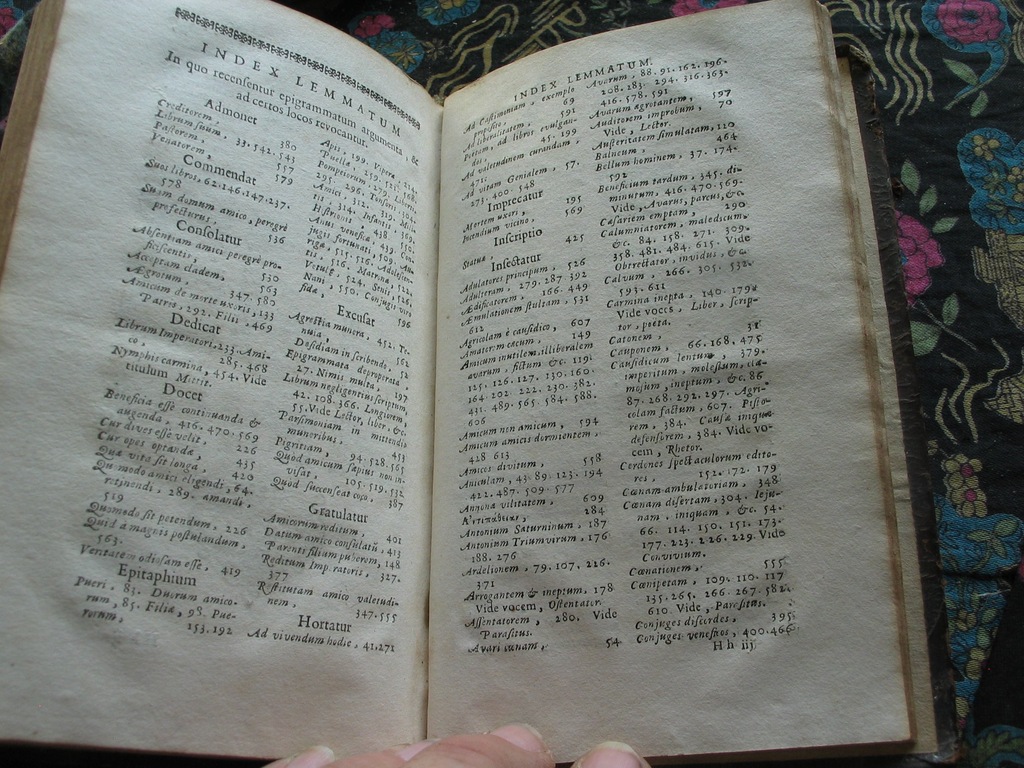 INDEX LEMMATUM
In quo recensentur epigrammatum argumenta, &
ad certos locos revocantur.
Admonet
Creditorem, 380
Librum suum, 33. 542. 543
Pastorem, 557
Venatorem, 579
Commendat
Suos libros, 62. 146. 147. 237.
578
Suam domum amico, peregrè
profecturus. 536
Consolatur
Absentiam amici peregrè pro-
ficiscentis, 530
Acceptam cladem, 563
Ægrotum, 347. 580
Amicum de morte uxoris, 133
Patris, 292. Filii, 469
Dedicat
Librum Imperatori, 233. Ami-
co, 285. 468
Nymphis carmina, 454. Vide
titulum Mittit.
Docet
Beneficia esse continuanda &
augenda, 416. 470. 569
Cur dives esse velit, 226
Cur opes optandæ, 435
Quæ vita sit longa, 420
Quomodo amici eligendi, 64.
retinendi, 289. amandi,
519
Quomodo sit petendum, 226
Quid à magnis postulandum,
563.
Veritatem odiosam esse, 419
Epitaphium
Pueri, 83. Duorum amico-
rum, 85. Filiæ, 98. Pue-
rorum, 153. 192
Apis, 199. Vipera
Puella,
Pompeiorum, 279. Libera,
295. 296. Tonsoris, 304.
Amici, 312. 319. Mili-
tis, 314. Infantis
Histrionis, 438.
Anus venefica, 439.
jugis fortunati, 509. Au-
riga, 515. 516. Adolescen-
tis, 524. Senis, 526.
Vetulæ, 526. Matronæ,
Nani, 550. Conjugis viro
fidæ, 596
Excusat
Agrestia munera, 452. Te-
nuia,
Desidiam in scribendo, 562
Epigrammata deproperata, 52
27. Nimis multa, 197
Librum negligentius scriptum,
42. 108. 366. Longiorem,
55. Vide Lector, liber, &c.
Parsimoniam in mittendis
muneribus, 453
Pigritiam, 94. 528. 565
Quod amicum sæpius non in-
visat, 105. 519. 532
Quod succenseat coco, 387
Gratulatur
Amicorum reditum, 401
Datum amico consulatũ, 413
Parenti filium puberem, 148
Reditum Imperatoris, 327.
377
Restitutam amico valetudi-
nem, 347. 555
Hortatur
Ad vivendum hodie, 41. 271
INDEX LEMMATUM.
Ad Castimoniam, exemplo
proposito, 69
Ad liberalitatem, 591
Poetam, ad libros evulgan-
dos, 45. 199
Ad valetudinem curandam,
471.
Ad vitam Genialem, 57.
273. 400. 548
Imprecatur
Mortem uxori, 195
Incendium vicino, 569
Inscriptio
Statuæ, 425
Insectatur
Adulatores principum, 526
Adulteram, 279. 287. 392
Ædificatorem, 166. 449
Æmulationem stultam, 531
612
Agricolam è causidico, 607
Amatorem cæcum, 149
Amicum inutilem, illiberalem
avarum, fictum &c. 119.
125. 126. 127. 130. 160.
164. 202. 222. 230. 382.
431. 489. 565. 584. 588.
606
Amicum non amicum, 594
Amicum amicis dormientem,
428 613
Amicos divitum, 558
Aniculam, 43. 89. 123. 194
422. 487. 509. 577
Annona vilitatem, 609
284
Antonium Saturninum, 187
Antonium Triumvirum, 176
188. 276
Ardelionem, 79. 107. 216.
371
Arrogantem & ineptum, 178
Vide vocem, Ostentator.
Assentatorem, 280. Vide
Parasitus.
Avari cœnam, 54
Avarum, 88. 91. 162. 196.
208. 283. 294. 316. 363.
416. 578. 591
Avarum ægrotantem, 597
Auditorem improbum, 70
Vide, Lector.
Austeritatem simulatam, 110
Balneum, 464
Bellum hominem, 37. 174.
592
Beneficium tardum, 345. di-
minutum, 416. 470. 569.
Vide, Avarus, parcus, &c.
Cæsariem emptam, 290
Calumniatorem, maledicum
&c. 84. 158. 271. 309.
358. 481. 484. 615. Vide
Obtrectator, invidus, &c.
Calvum, 266. 305. 532.
593. 611
Carmina inepta, 140. 179.
Vide voces, Liber, scrip-
tor, poeta.
Catonem, 31
Cauponem, 66. 168. 475
Causidicum lentum, 379.
imperitum, molestum, cla-
mosum, ineptum, &c. 86
87. 268. 292. 297. Agri-
colam factum, 607. Pisto-
rem, 384. Causæ iniquæ
defensorem, 384. Vide vo-
cem, Rhetor.
Cerdones spectaculorum edito-
res, 152. 172. 179
Cœnam ambulatoriam, 348
Cœnam disertam, 304. Jeju-
nam, iniquam, &c. 54.
66. 114. 150. 151. 173.
177. 223. 226. 229. Vide
Convivium.
Cœnationem, 555
Cœnipetam, 109. 110. 117
135. 265. 266. 267. 582.
610. Vide, Parasitus.
Conjuges discordes, 395
Conjuges veneficos, 400. 466
Hh iij